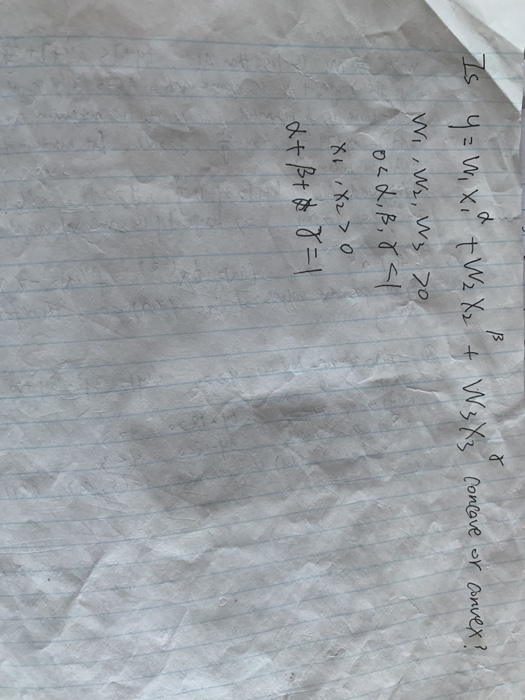 Is y = w₁x₁^α + w₂x₂^β + w₃x₃^γ concave or convex?
w₁, w₂, w₃ > 0
0 < α, β, γ < 1
x₁, x₂ > 0
α + β + γ = 1